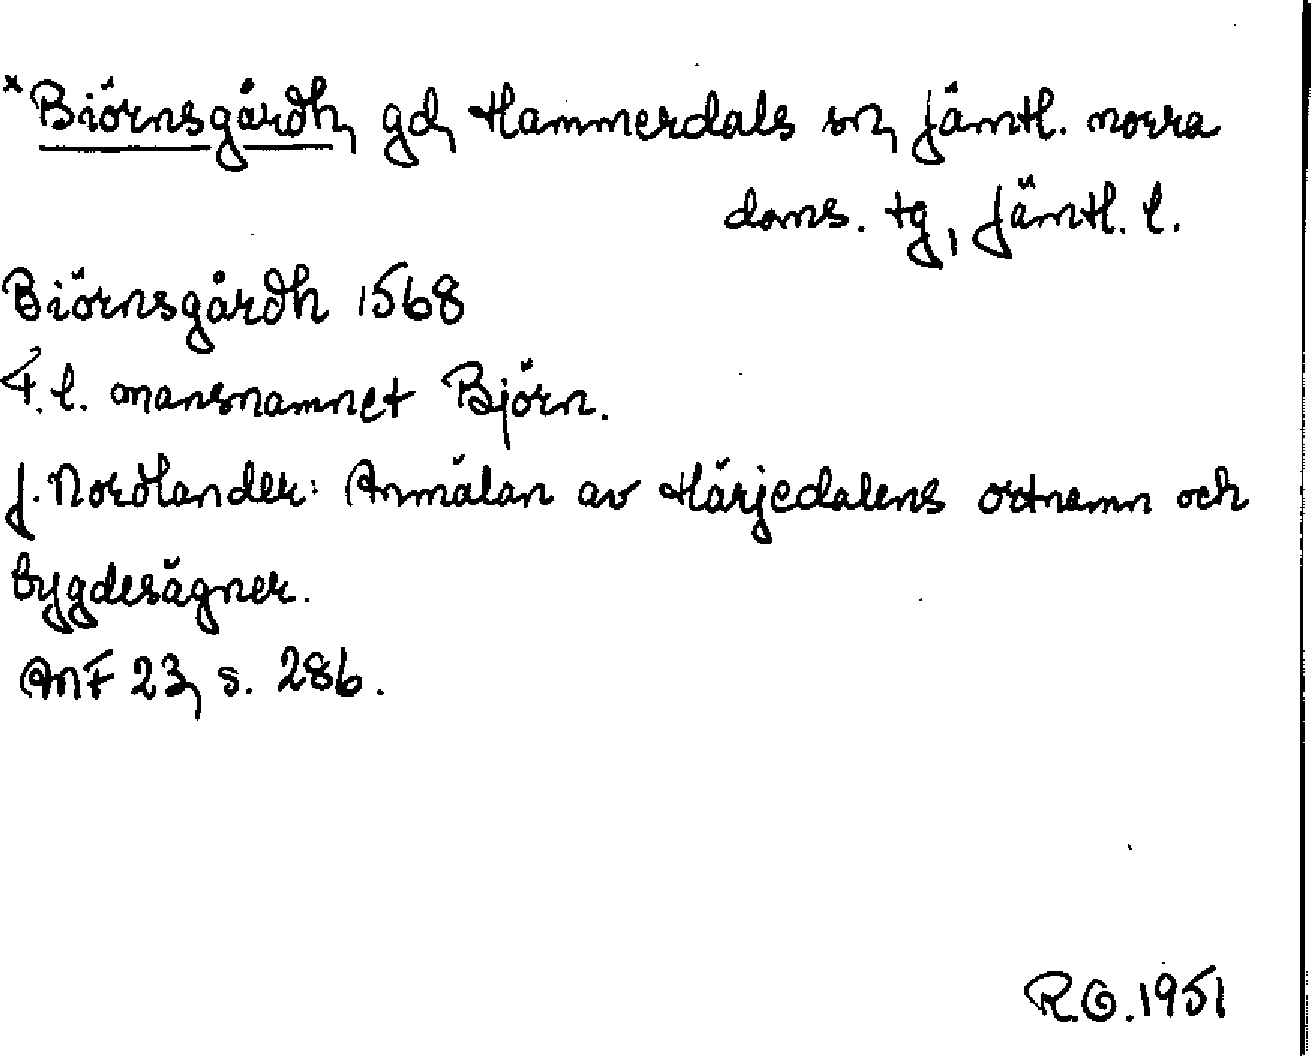 *Biörnsgårdh, gd, Hammerdals sn, Jämtl. norra
doms. tg, Jämtl. l.
Biörnsgårdh 1568
F. l. mansnamnet Björn.
J. Nordlander: Anmälan av Härjedalens ortnamn och
bygdesägner.
ANF 23, s. 286.
R.O. 1951